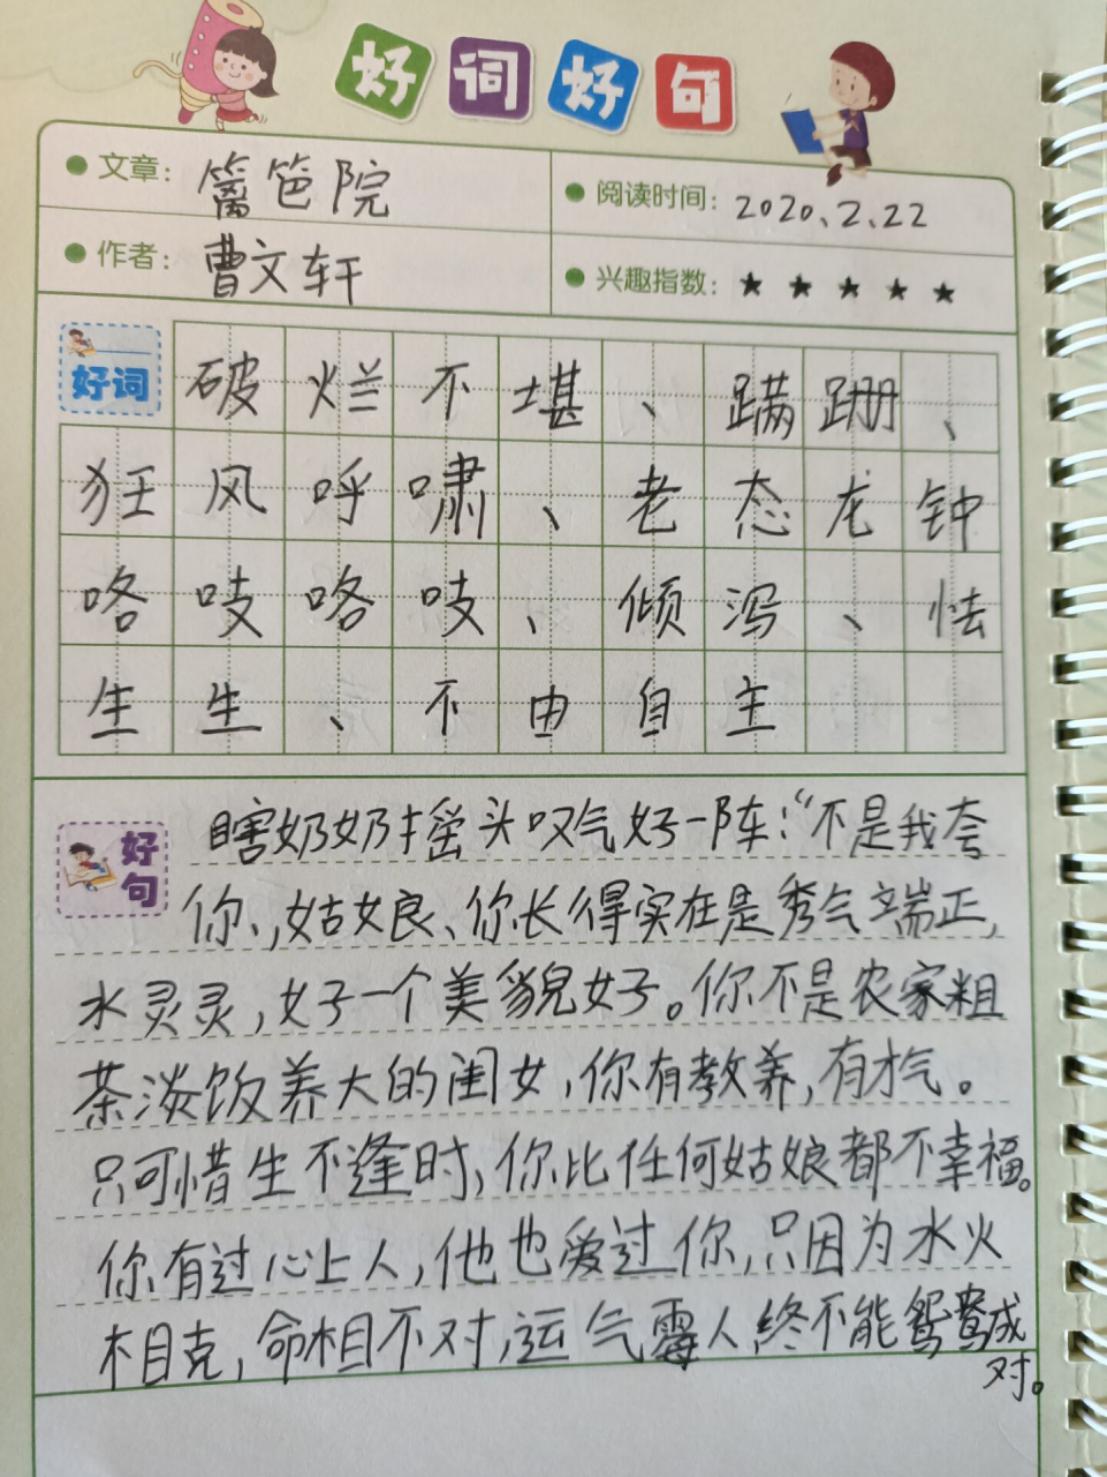 好词好句
文章：篱笆院
阅读时间：2020、2、22
作者：曹文轩
兴趣指数：★ ★ ★ ★ ★
好词
破烂不堪、蹒跚、
狂风呼啸、老态龙钟
咯吱咯吱、倾泻、怯
生生、不由自主
好句
瞎奶奶摇头叹气好一阵：“不是我夸
你，姑娘、你长得实在是秀气端正，
水灵灵，好一个美貌女子。你不是农家粗
茶淡饭养大的闺女，你有教养，有才气。
只可惜生不逢时，你比任何姑娘都不幸福。
你有过心上人，他也爱过你，只因为水火
相克，命相不对，运气霉人，终不能鸳鸯成
对。